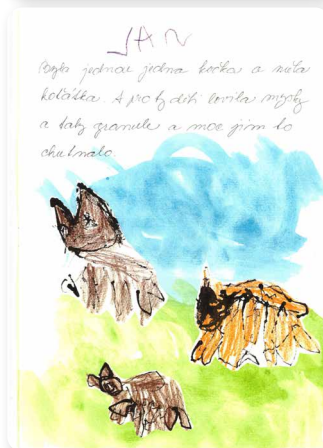 JAN
Byla jednou jedna kočka a měla
koťátka. A pro ty děti lovila myšky
a taky granule a moc jim to
chutnalo.